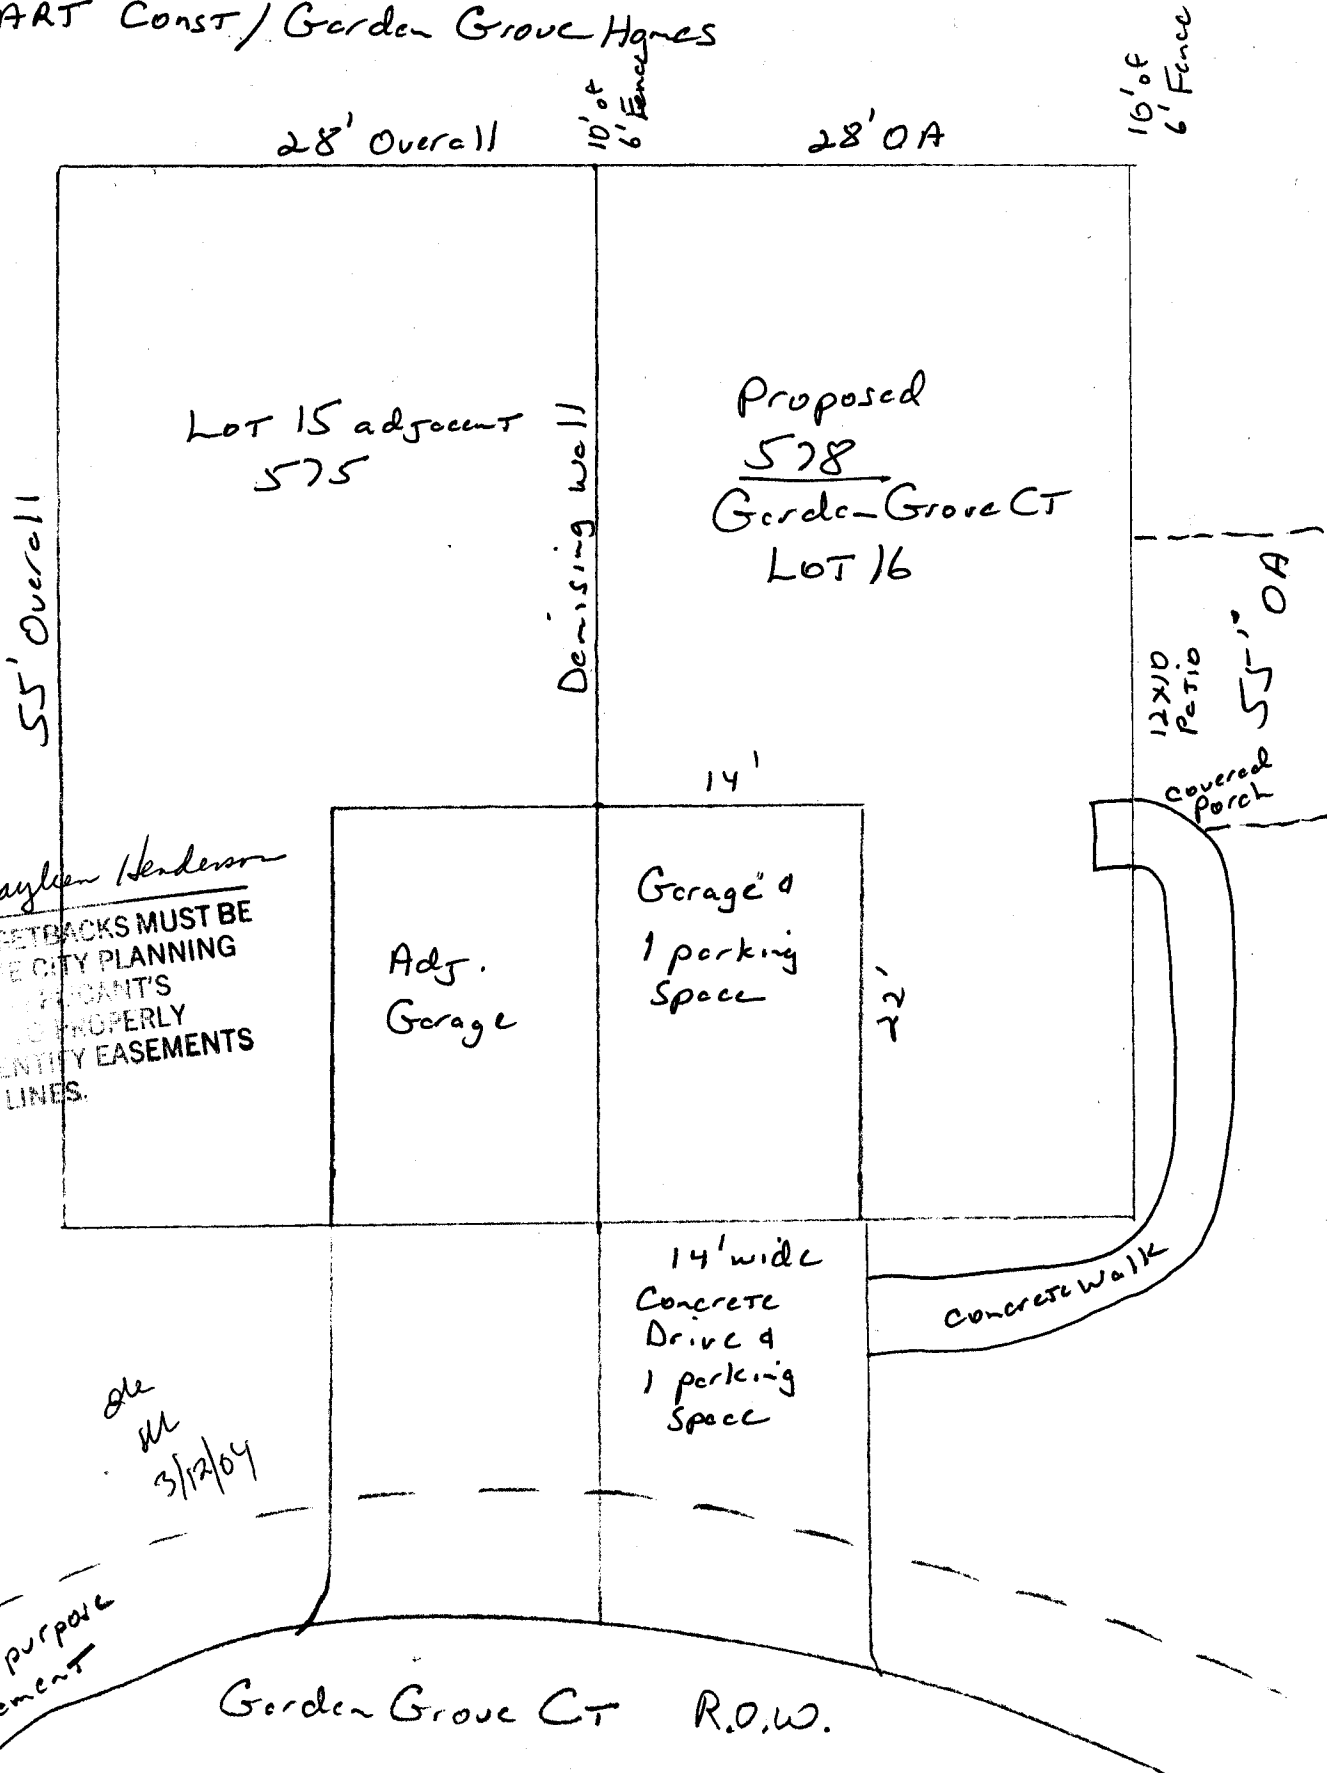 ART Const / Garden Grove Homes
28' Overall
10' of
6' Fence
28' OA
10' of
6' Fence
Lot 15 adjacent
575
Demising Wall
Proposed
578
Garden Grove CT
LOT 16
55' Overall
55' OA
12x10
Patio
Covered
Porch
14'
Henderson
SETBACKS MUST BE
CITY PLANNING
CANT'S
PROPERLY
ENTIFY EASEMENTS
LINES.
Adj.
Garage
Garage &
1 parking
Space
22'
14' wide
Concrete
Drive &
1 parking
Space
Concrete Walk
3/12/04
purpose
ement
Garden Grove CT R.O.W.